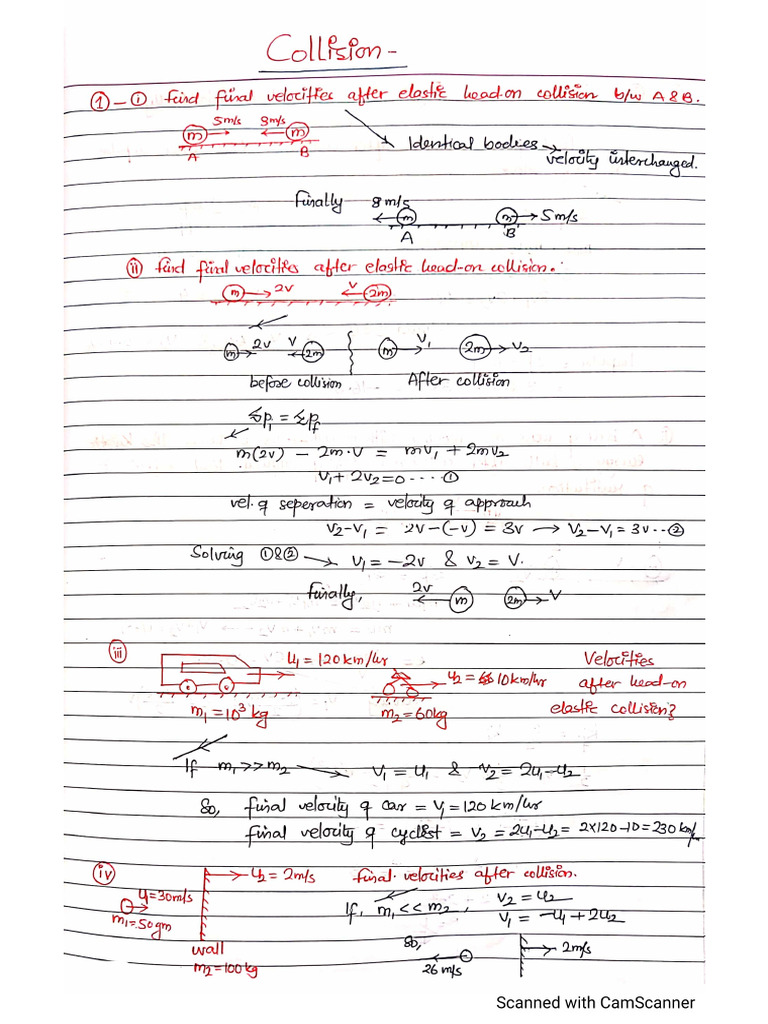 Collision -
① - ① find final velocities after elastic head-on collision b/w A & B.
m 5m/s 8m/s m
A B
Identical bodies → velocity interchanged.
Finally 8 m/s m m → 5 m/s
A B
ii find final velocities after elastic head-on collision.
m → 2v v ← 2m
m 2v v 2m m v₁ 2m → v₂
before collision. After collision
Σpᵢ = Σp_f
m(2v) - 2m·v = mv₁ + 2mv₂
v₁ + 2v₂ = 0 ---- ①
vel. of seperation = velocity of approach
v₂-v₁ = 2v-(-v) = 3v → v₂-v₁ = 3v --②
Solving ①&② → v₁ = -2v & v₂ = v.
Finally, 2v m 2m → v
iii u₁ = 120 km/hr u₂ = 10 km/hr Velocities
after head-on
m₁ = 10³ kg m₂ = 60kg elastic collision?
If m₁ >> m₂ → v₁ = u₁ & v₂ = 2u₁-u₂
So, final velocity of car = v₁ = 120 km/hr
final velocity of cyclist = v₂ = 2u₁-u₂ = 2×120-10 = 230 km/
iv u₂ = 2m/s final velocities after collision.
u₁=30m/s
m₁=50gm
If, m₁ << m₂, v₂ = u₂
v₁ = -u₁ + 2u₂
wall
m₂ = 100 kg
So, 26 m/s → 2m/s
Scanned with CamScanner